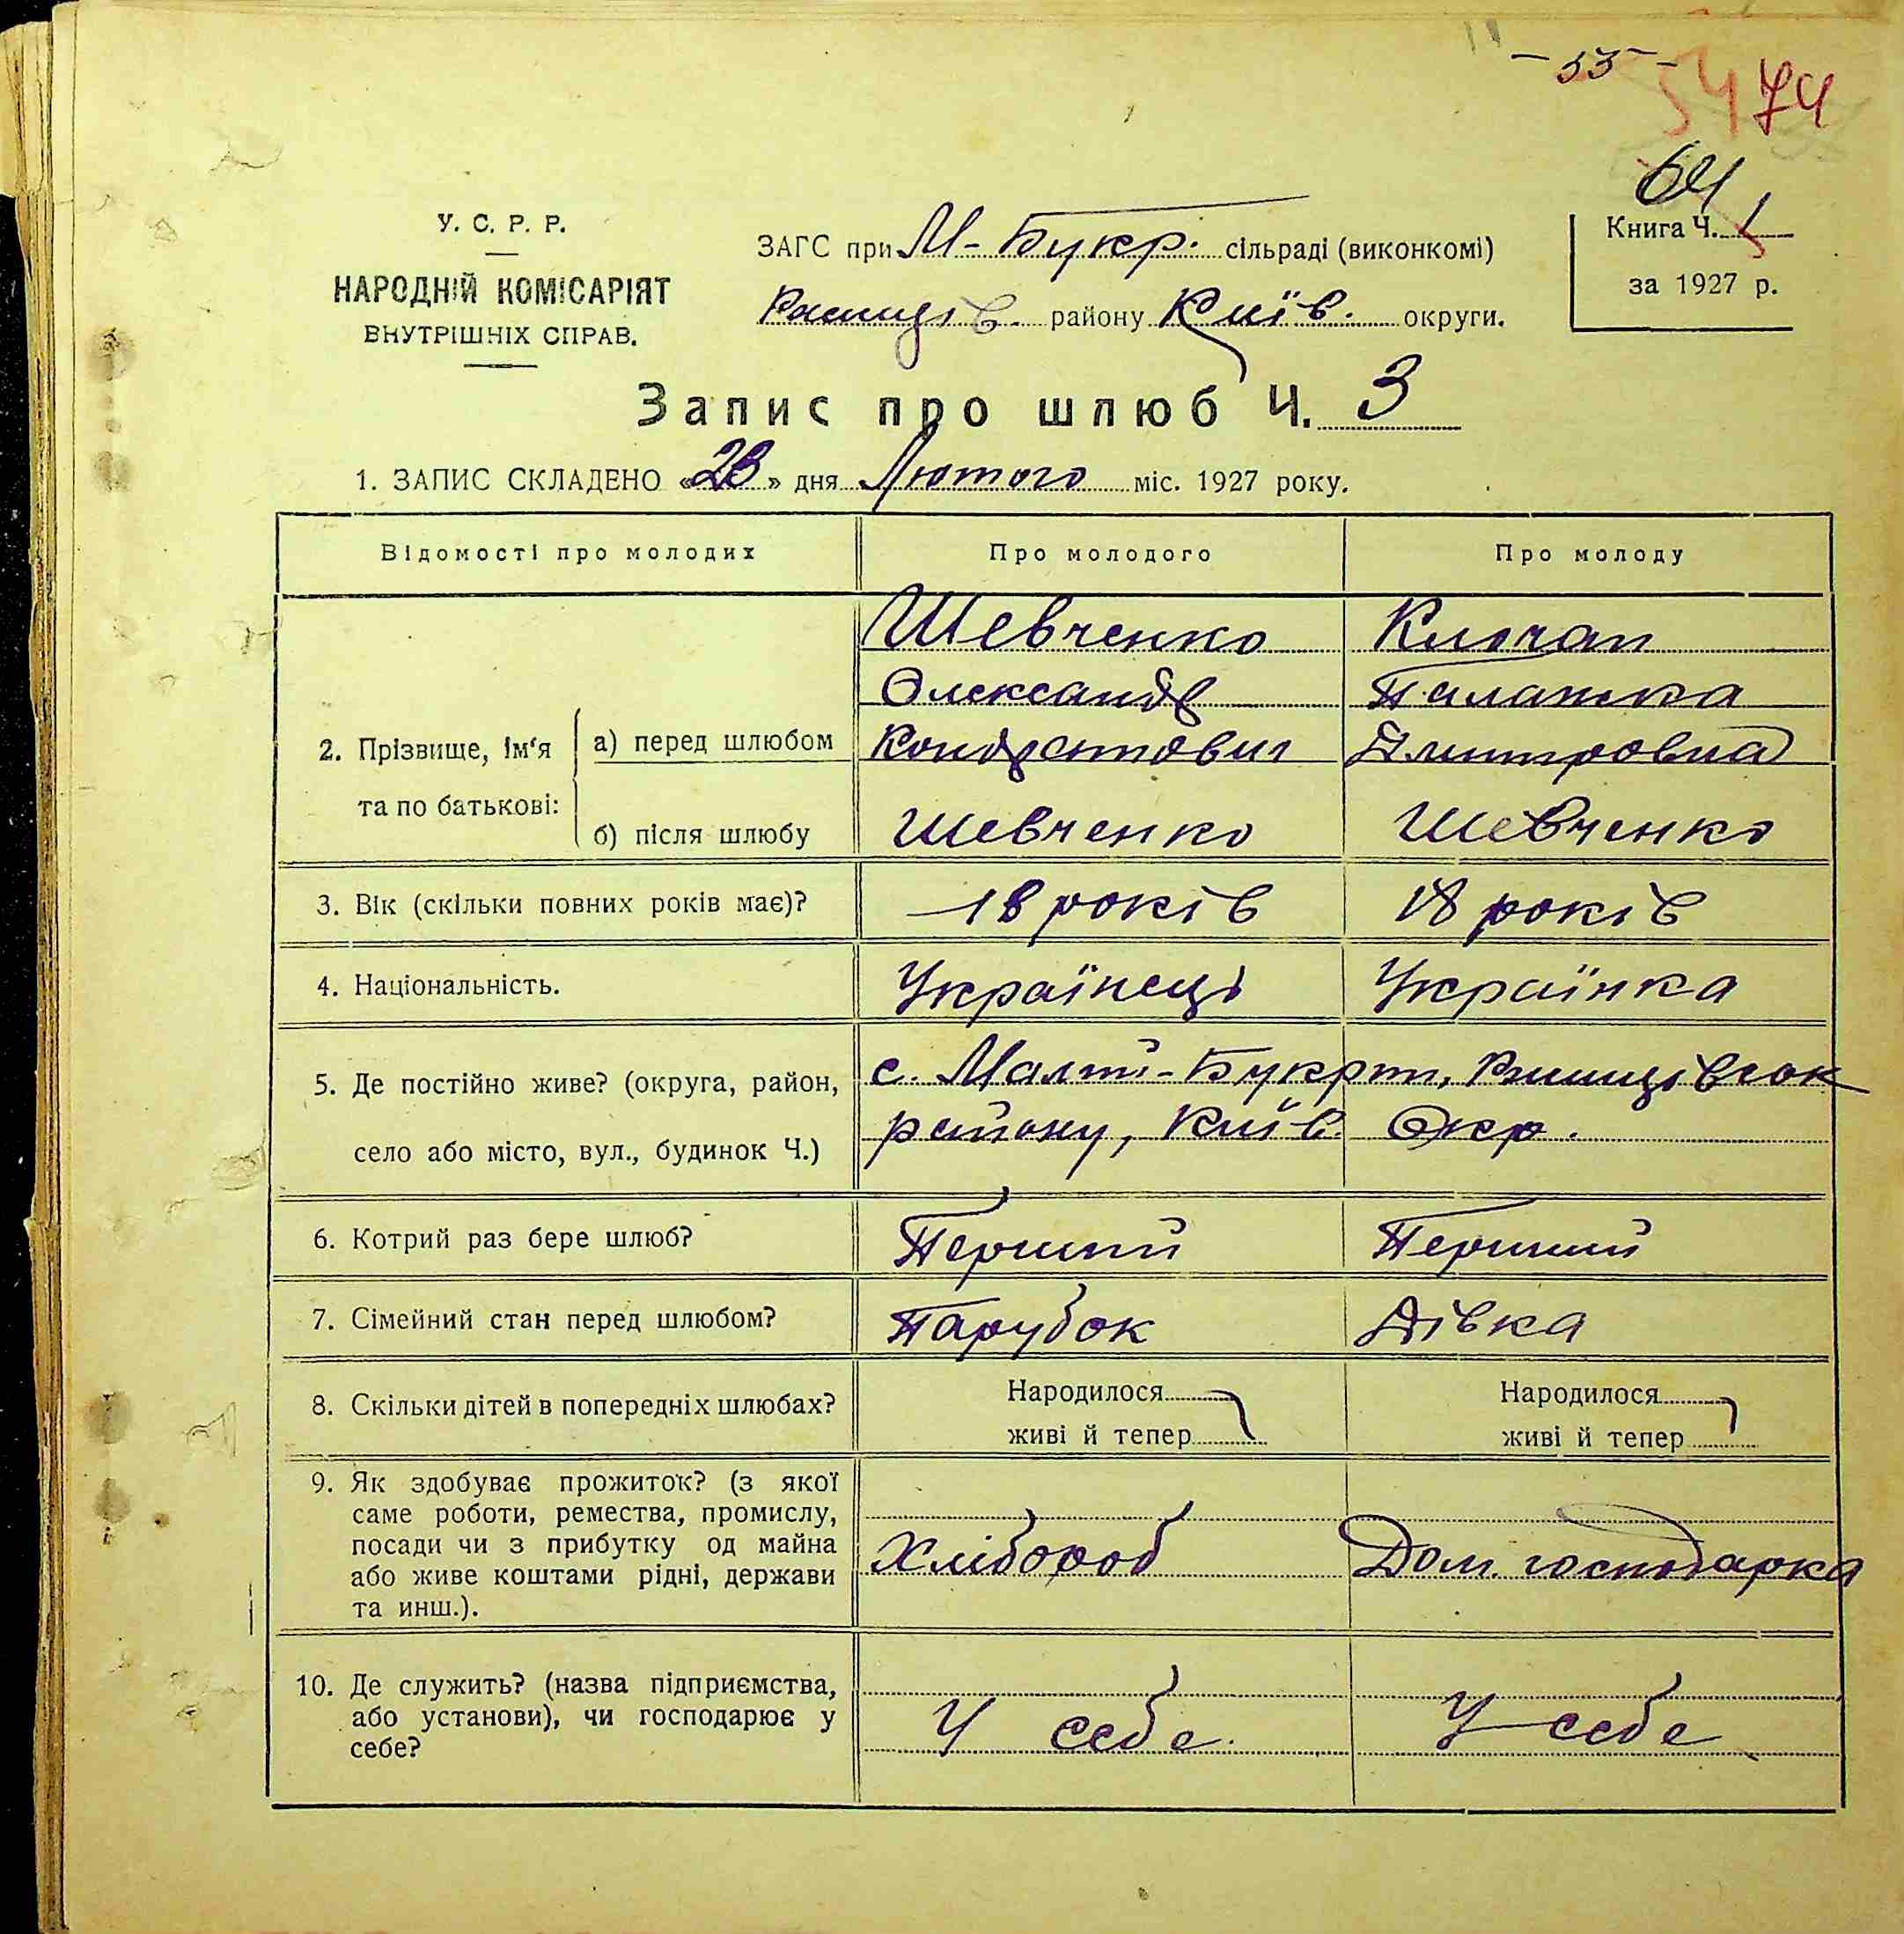 - 33 -
54 74
64
У. С. Р. Р.
НАРОДНІЙ КОМІСАРІЯТ
ВНУТРІШНІХ СПРАВ.
ЗАГС при М-Букр. сільраді (виконкомі)
Ржищів. району Київ. округи.
Книга Ч.
за 1927 р.
Запис про шлюб Ч. 3
1. ЗАПИС СКЛАДЕНО «23» дня Лютого міс. 1927 року.
Відомості про молодих
Про молодого
Про молоду
2. Прізвище, ім'я
та по батькові:
а) перед шлюбом
Шевченко
Олександр
Кондратович
Клочан
Палажка
Дмитровна
б) після шлюбу
Шевченко
Шевченко
3. Вік (скільки повних років має)?
18 років
18 років
4. Національність.
Українець
Українка
5. Де постійно живе? (округа, район,
село або місто, вул., будинок Ч.)
с. Малий-Букрин, Ржищівськ
району, Київ. Окр.
6. Котрий раз бере шлюб?
Перший
Перший
7. Сімейний стан перед шлюбом?
Парубок
Дівка
8. Скільки дітей в попередніх шлюбах?
Народилося
живі й тепер
Народилося
живі й тепер
9. Як здобуває прожиток? (з якої
саме роботи, ремества, промислу,
посади чи з прибутку од майна
або живе коштами рідні, держави
та инш.).
Хлібороб
Дом. господарка
10. Де служить? (назва підприємства,
або установи), чи господарює у
себе?
У себе
У себе